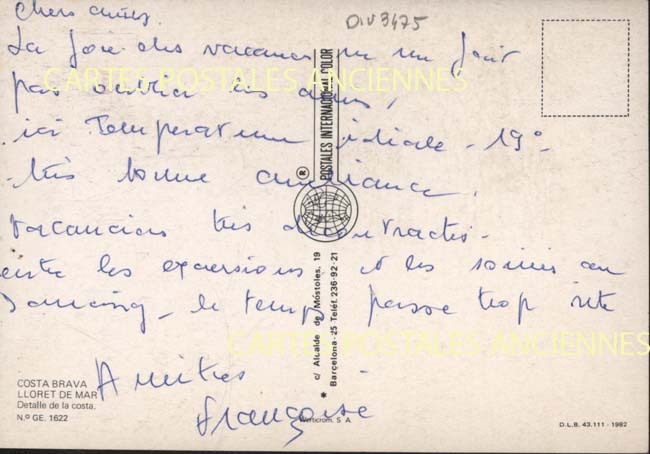 Chers amis,
DIV3475
La joie des vacances ne me fait
pas oublier les amis,
ici Température idéale - 19°-
très bonne ambiance,
vacanciers très décontractés -
entre les excursions et les soirées au
Dancing - le temps passe trop vite
Amitiés
Françoise
CARTES POSTALES ANCIENNES
CARTES POSTALES ANCIENNES
POSTALES INTERNACIONAL COLOR
®
c/ Alcalde de Móstoles, 19
* Barcelona-25 Teléf. 236-92-21
COSTA BRAVA
LLORET DE MAR
Detalle de la costa.
N.º GE. 1622
S. A.
D.L.B. 43.111 - 1982